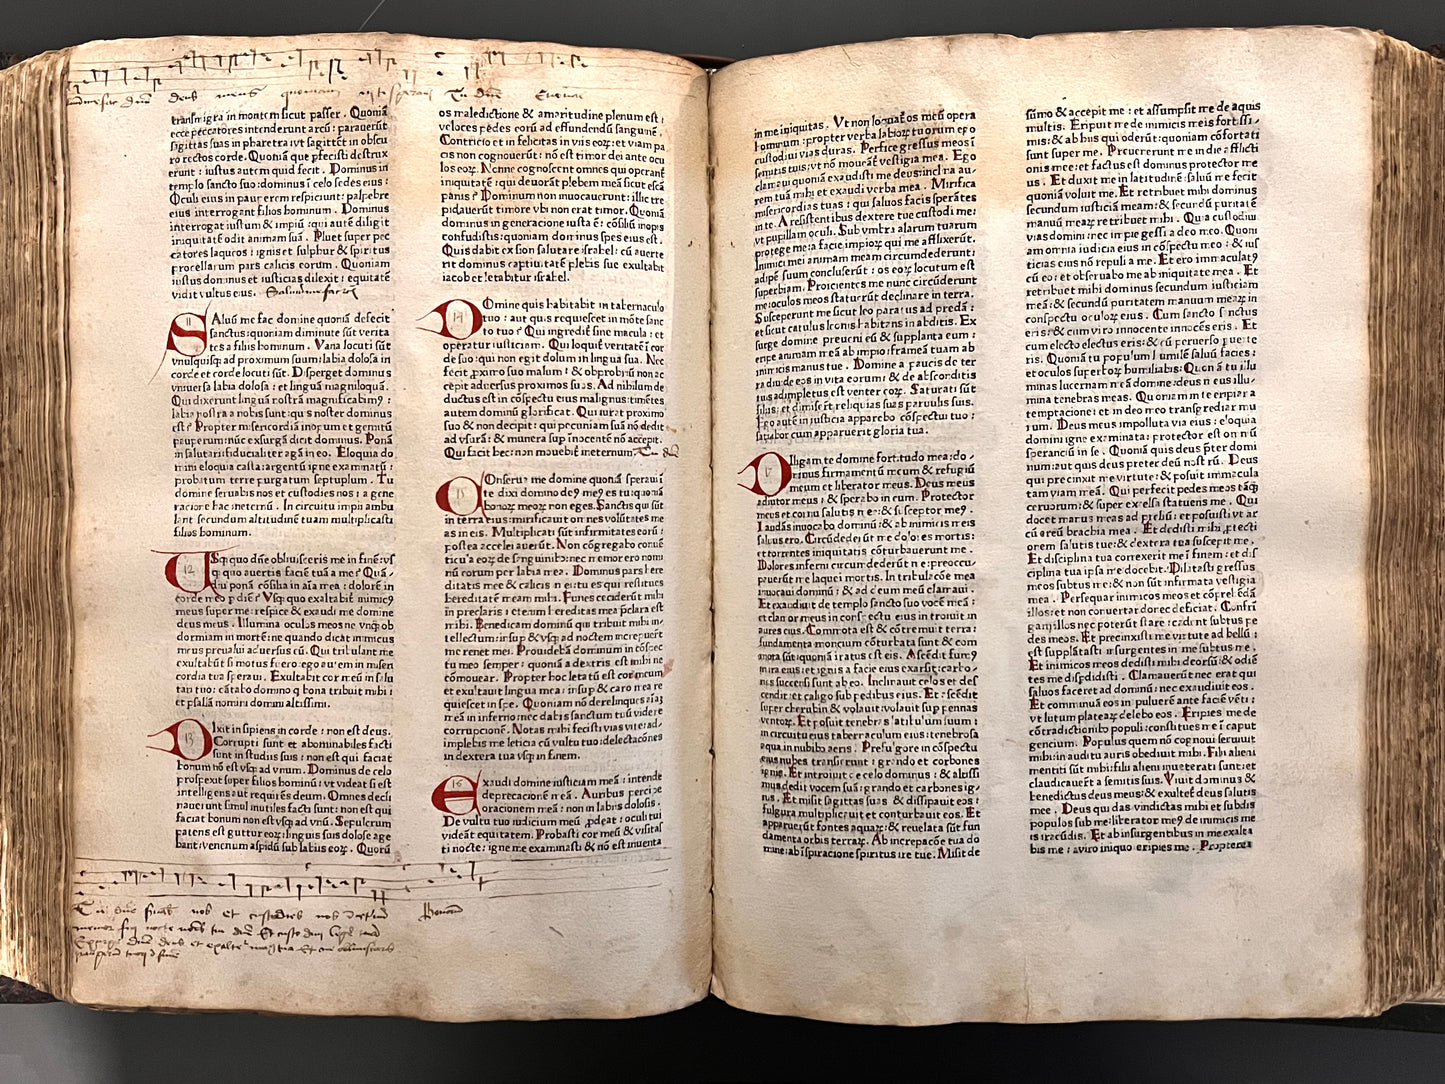 deus meus quoniam
transmigra in montem sicut passer. Quoniã
ecce peccatores intenderunt arcũ: parauerũt
sagittas suas in pharetra: vt sagittẽt in obscu
ro rectos corde. Quoniã que pfecisti destrux
erunt: iustus autem quid fecit. Dominus in
templo sancto suo: dominus ĩ celo sedes eius:
Oculi eius in pauperem respiciunt: palpebre
eius interrogant filios hominum. Dominus
interrogat iustum & impiũ: qui autẽ diligit
iniquitatẽ odit animam suã. Pluet super pec
catores laqueos: ignis et sulphur & spiritus
procellarum pars calicis eorum. Quoniam
iustus dominus et iusticias dilexit: equitatẽ
vidit vultus eius.
11
SAluũ me fac domine quoniã defecit
sanctus: quoniam diminute sũt verita
tes a filiis hominum. Vana locuti sũt
vnusquisq; ad proximum suum: labia dolosa in
corde et corde locuti sũt. Disperget dominus
vniuersa labia dolosa: et linguã magniloquã.
Qui dixerunt linguã nostrã magnificabimꝰ:
labia nostra a nobis sunt: quis noster dominus
est? Propter miseriã inopum et gemitũ
pauperum: nũc exsurgã dicit dominus. Ponã
in salutari: fiducialiter agã in eo. Eloquia do
mini eloquia casta: argentũ igne examinatũ:
probatum terre purgatum septuplum. Tu
domine seruabis nos et custodies nos: a gene
ratione hac ineternũ. In circuitu impii ambu
lant: secundum altitudinẽ tuam multiplicasti
filios hominum.
12
USq; quo dñe obliuisceris me in finẽ: vs
q; quo auertis faciẽ tuã a me? Quã
diu ponã cõsilia in aĩa mea: dolorẽ in
corde meo p diẽ? Vsq; quo exaltabit̃ inimicꝰ
meus super me: respice & exaudi me domine
deus meus. Illumina oculos meos ne vnq̃ ob
dormiam in morte: ne quando dicat inimicus
meus preualui aduersus eũ. Qui tribulant me
exultabũt si motus fuero: ego autem in miseri
cordia tua speraui. Exultabit cor meũ in salu
tari tuo: cãtabo domino q̃ bona tribuit mihi:
et psallã nomini domini altissimi.
13
DIxit insipiens in corde: non est deus.
Corrupti sunt et abominabiles facti
sunt in studiis suis: non est qui faciat
bonum nõ est vsq; ad vnum. Dominus de celo
prospexit super filios hominũ: vt videat si est
intelligens aut requirẽs deum. Omnes decli
nauerunt simul inutiles facti sunt: non est qui
faciat bonum non est vsq; ad vnũ. Sepulcrum
patens est guttur eoꝝ: linguis suis dolose age
bant: venenum aspidũ sub labiis eoꝝ. Quorũ
os maledictione & amaritudine plenum est:
veloces pedes eorũ ad effundendũ sanguinẽ.
Contricio et infelicitas in viis eoꝝ: et viam pa
cis non cognouerũt: nõ est timor dei ante ocu
los eoꝝ. Nonne cognoscent omnes qui operant̃
iniquitatẽ: qui deuorãt plebem meã sicut escã
panis? Dominum non inuocauerunt: illic tre
pidauerũt timore vbi non erat timor. Quoniã
dominus in generacione iusta ẽ: cõsiliũ inopis
confudistis: quoniam dominus spes eius est.
Quis dabit ex sion salutare israhel: cũ auerte
rit dominus captiuitatẽ plebis sue exultabit
iacob et letabitur israhel.
14
DOmine quis habitabit in tabernaculo
tuo: aut quis requiescet in mõte sanc
to tuo? Qui ingredit̃ sine macula: et
operatur iusticiam. Qui loquit̃ veritatẽ ĩ cor
de suo: qui non egit dolum in lingua sua. Nec
fecit proximo suo malum: & obprobriũ non ac
cepit aduersus proximos suos. Ad nihilum de
ductus est in cõspectu eius malignus: timẽtes
autem dominũ glorificat. Qui iurat proximo
suo & non decipit: qui pecuniam suã nõ dedit
ad vsurã: & munera sup innocentẽ nõ accepit.
Qui facit hec: non mouebit̃ ineternum.
15
COnserua me domine quoniã speraui ĩ
te: dixi domino deꝰ meꝰ es tu: quoniã
bonoꝝ meoꝝ non eges. Sanctis qui sũt
in terra eius: mirificauit omnes volũtates me
as in eis. Multiplicati sũt infirmitates eorũ:
postea accelerauerũt. Non cõgregabo conuẽ
ticula eoꝝ de sanguinibꝰ: nec memor ero nomi
nũ eorum per labia mea. Dominus pars here
ditatis mee & calicis mei: tu es qui restitues
hereditatẽ meam mihi. Funes ceciderũt mihi
in preclaris: etenim hereditas mea pclara est
mihi. Benedicam dominũ qui tribuit mihi in
tellectum: insup & vsq; ad noctem increpuerũt
me renes mei. Prouidebã dominum in cõspec
tu meo semper: quoniã a dextris est mihi ne
cõmouear. Propter hoc letatũ est cor meum
et exultauit lingua mea: insup & caro mea re
quiescet in spe. Quoniam nõ derelinques aĩaz
meã in inferno: nec dabis sanctum tuũ videre
corrupcionẽ. Notas mihi fecisti vias vite: ad
implebis me leticia cũ vultu tuo: delectacões
in dextera tua vsq; in finem.
16
Exaudi domine iusticiam meã: intende
deprecacionẽ meã. Auribus percipe
oracionem meã: non in labiis dolosis.
De vultu tuo iudicium meũ prodeat: oculi tui
videãt equitatem. Probasti cor meũ & visitas
ti nocte: igne me examinasti & nõ est inuenta
Tu dñe
nos et custodies nos
in me iniquitas. Vt non loquat̃ os meũ opera
hominum: propter verba labioꝝ tuorum ego
custodiui vias duras. Perfice gressus meos ĩ
semitis tuis: vt nõ moueãt̃ vestigia mea. Ego
clamaui quoniã exaudisti me deus: inclina au
rem tuã mihi et exaudi verba mea. Mirifica
misericordias tuas: qui saluos facis sperãtes
in te. A resistentibus dextere tue custodi me:
vt pupillam oculi. Sub vmbra alarum tuarum
protege me: a facie impioꝝ qui me afflixerũt.
Inimici mei animam meam circumdederunt:
adipẽ suum concluserũt: os eoꝝ locutum est
superbiam. Proicientes me nunc circũderunt
me: oculos meos statuerũt declinare in terra.
Susceperunt me sicut leo paratus ad predã:
et sicut catulus leonis habitans in abditis. Ex
surge domine preueni eũ & supplanta eum:
eripe animam meã ab impio: frameã tuam ab
inimicis manus tue. Domine a paucis de ter
ra diuide eos in vita eorum: & de absconditis
tuis adimpletus est venter eoꝝ. Saturati sũt
filiis: et dimiserũt reliquias suas paruulis suis.
Ego autẽ in iusticia apparebo cõspectui tuo:
satiabor cum apparuerit gloria tua.
17
DIligam te domine fortitudo mea: do
minus firmamentũ meum & refugiũ
meum et liberator meus. Deus meus
adiutor meus: & sperabo in eum. Protector
meus et cornu salutis mee: & susceptor meꝰ.
Laudãs inuocabo dominũ: & ab inimicis meis
saluus ero. Circũdederũt me dolores mortis:
et torrentes iniquitatis cõturbauerunt me.
Dolores inferni circumdederũt me: preoccu
pauerũt me laquei mortis. In tribulacõe mea
inuocaui dominũ: & ad deum meũ clamaui.
Et exaudiuit de templo sancto suo vocẽ meã:
et clamor meus in conspectu eius introiuit in
aures eius. Commota est & cõtremuit terra:
fundamenta moncium cõturbata sunt & com
mota sũt: quoniã iratus est eis. Ascẽdit fumꝰ
in ira eius: et ignis a facie eius exarsit: carbo
nes succensi sunt ab eo. Inclinauit celos et des
cendit: et caligo sub pedibus eius. Et ascẽdit
super cherubin & volauit: volauit sup pennas
ventoꝝ. Et posuit tenebras latibulum suum:
in circuitu eius tabernaculum eius: tenebrosa
aqua in nubibꝰ aeris. Prefulgore in cõspectu
eius nubes transierunt: grando et carbones
ignis. Et intonuit de celo dominus: & altissi
mus dedit vocem suã: grando et carbones ig
nis. Et misit sagittas suas & dissipauit eos:
fulgura multiplicauit et conturbauit eos. Et
apparuerũt fontes aquaꝝ: & reuelata sũt fun
damenta orbis terraꝝ. Ab increpacõe tua do
mine: ab ĩspiracione spiritus ire tue. Misit de
sũmo & accepit me: et assumpsit me de aquis
multis. Eripuit me de inimicis meis fortissi
mis: & ab hiis qui oderũt: quoniam cõfortati
sunt super me. Preuenerunt me in die afflicti
onis mee: et factus est dominus protector me
us. Et duxit me in latitudinẽ: saluũ me fecit
quoniã voluit me. Et retribuet mihi dominus
secundum iusticiam meam: & secundũ puritatẽ
manuũ meaꝝ retribuet mihi. Quia custodiui
vias domini: nec impie gessi a deo meo. Quoni
am omnia iudicia eius in cõspectu meo: & ius
ticias eius nõ repuli a me. Et ero immaculatꝰ
cũ eo: et obseruabo me ab iniquitate mea. Et
retribuet mihi dominus secundum iusticiam
meã: & secundũ puritatem manuum meaꝝ in
conspectu oculoꝝ eius. Cum sancto sanctus
eris: & cum viro innocente innocẽs eris. Et
cum electo electus eris: & cũ peruerso peruerte
ris. Quoniã tu populum humilẽ saluũ facies:
et oculos superboꝝ humiliabis. Quoniã tu illu
minas lucernam meã domine: deus meus illu
mina tenebras meas. Quoniam in te eripiar a
temptacione: et in deo meo transgrediar mu
rum. Deus meus impolluta via eius: eloquia
domini igne examinata: protector est omniũ
speranciũ in se. Quoniã quis deus pter domi
num: aut quis deus preter deũ nostrũ. Deus
qui precinxit me virtute: & posuit immacula
tam viam meã. Qui perfecit pedes meos tãq̃
ceruorum: & super excelsa statuens me. Qui
docet manus meas ad preliũ: et posuisti vt ar
cũ ereũ brachia mea. Et dedisti mihi ptecti
onem salutis tue: & dextera tua suscepit me.
Et disciplina tua correxit me ĩ finem: et dis
ciplina tua ipsa me docebit. Dilatasti gressus
meos subtus me: & non sũt infirmata vestigia
mea. Persequar inimicos meos et cõprehẽdã
illos: et non conuertar donec deficiat. Confri
gam illos nec poterũt stare: cadent subtus pe
des meos. Et precinxisti me virtute ad bellũ:
et supplãtasti insurgentes in me subtus me.
Et inimicos meos dedisti mihi dorsũ: & odiẽ
tes me disp̃didisti. Clamauerũt nec erat qui
saluos faceret: ad dominũ: nec exaudiuit eos.
Et comminuã eos in puluerẽ ante faciẽ vẽti:
vt lutum plateaꝝ delebo eos. Eripies me de
cõtradictionibꝰ populi: constitues me ĩ caput
gencium. Populus quem nõ cognoui seruiuit
mihi: in auditu auris obediuit mihi. Filii alieni
mentiti sũt mihi: filii alieni inueterati sunt: et
claudicauerũt a semitis suis. Viuit dominus &
benedictus deus meus: & exultet̃ deus salutis
mee. Deus qui das vindictas mihi et subdis
populos sub me: liberator meꝰ de inimicis me
is iracũdis. Et ab insurgentibus in me exalta
bis me: a viro iniquo eripies me. Propterea